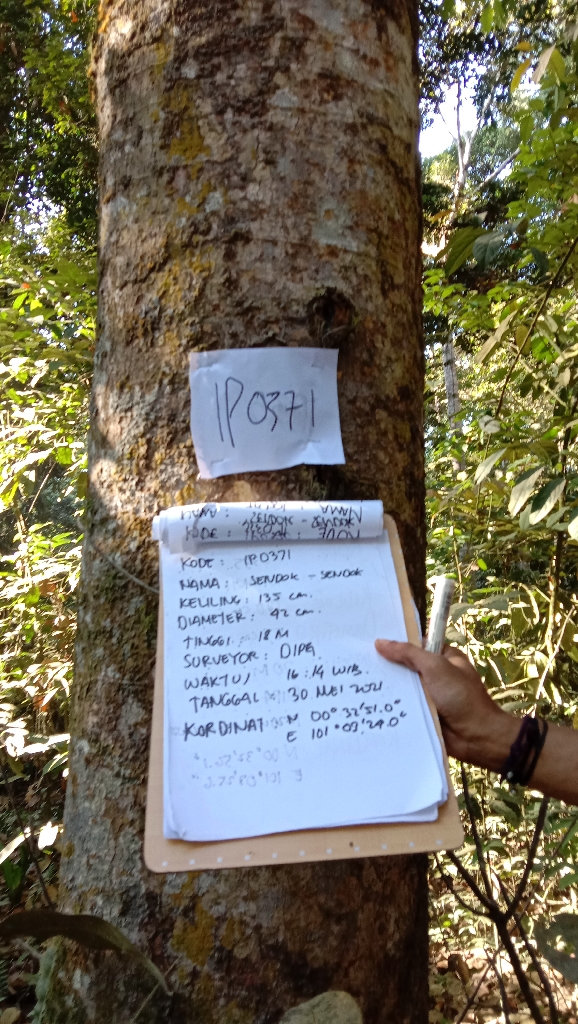 IP0371
NAMA : SENDOK - SENDOK
KODE :
KODE : IP0371
NAMA : SENDOK - SENDOK
KELILING : 135 cm.
DIAMETER : 42 cm.
TINGGI : 18 M
SURVEYOR : DIPA
WAKTU / 16:14 WIB.
TANGGAL 30 MEI 2021
KORDINAT : N 00° 32' 51.0"
E 101° 03' 29.0"